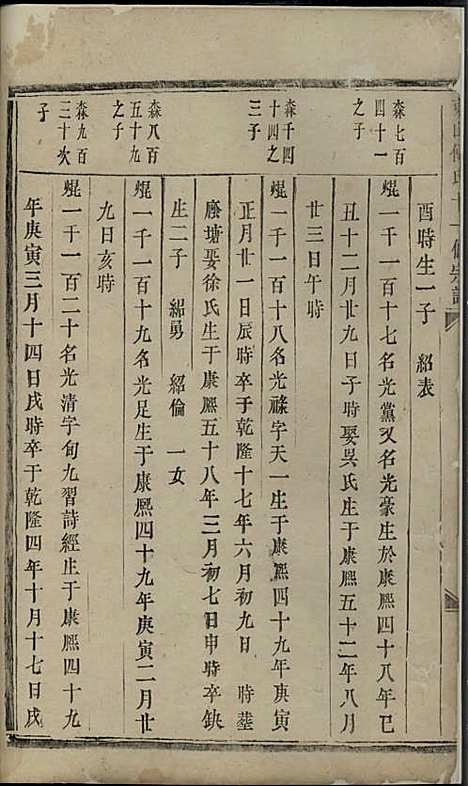 酉時生一子　紹表
森七百
四十一
之子
焜一千一百十七名光黨又名光豪生於康熙四十八年己
丑十二月廿九日子時娶吳氏生于康熙五十二年八月
廿三日午時
森千四
十四之
三子
焜一千一百十八名光祿字天一生于康熙四十九年庚寅
正月廿一日辰時卒于乾隆十七年六月初九日　時塟
塘娶徐氏生于康熙五十八年三月初七日申時卒缺
生二子　紹勇　紹倫　一女
森八百
五十九
之子
焜一千一百十九名光足生于康熙四十九年庚寅二月廿
九日亥時
森九百
三十次
子
焜一千一百二十名光清字旬九習詩經生于康熙四十九
年庚寅三月十四日戌時卒于乾隆四年十月十七日戌